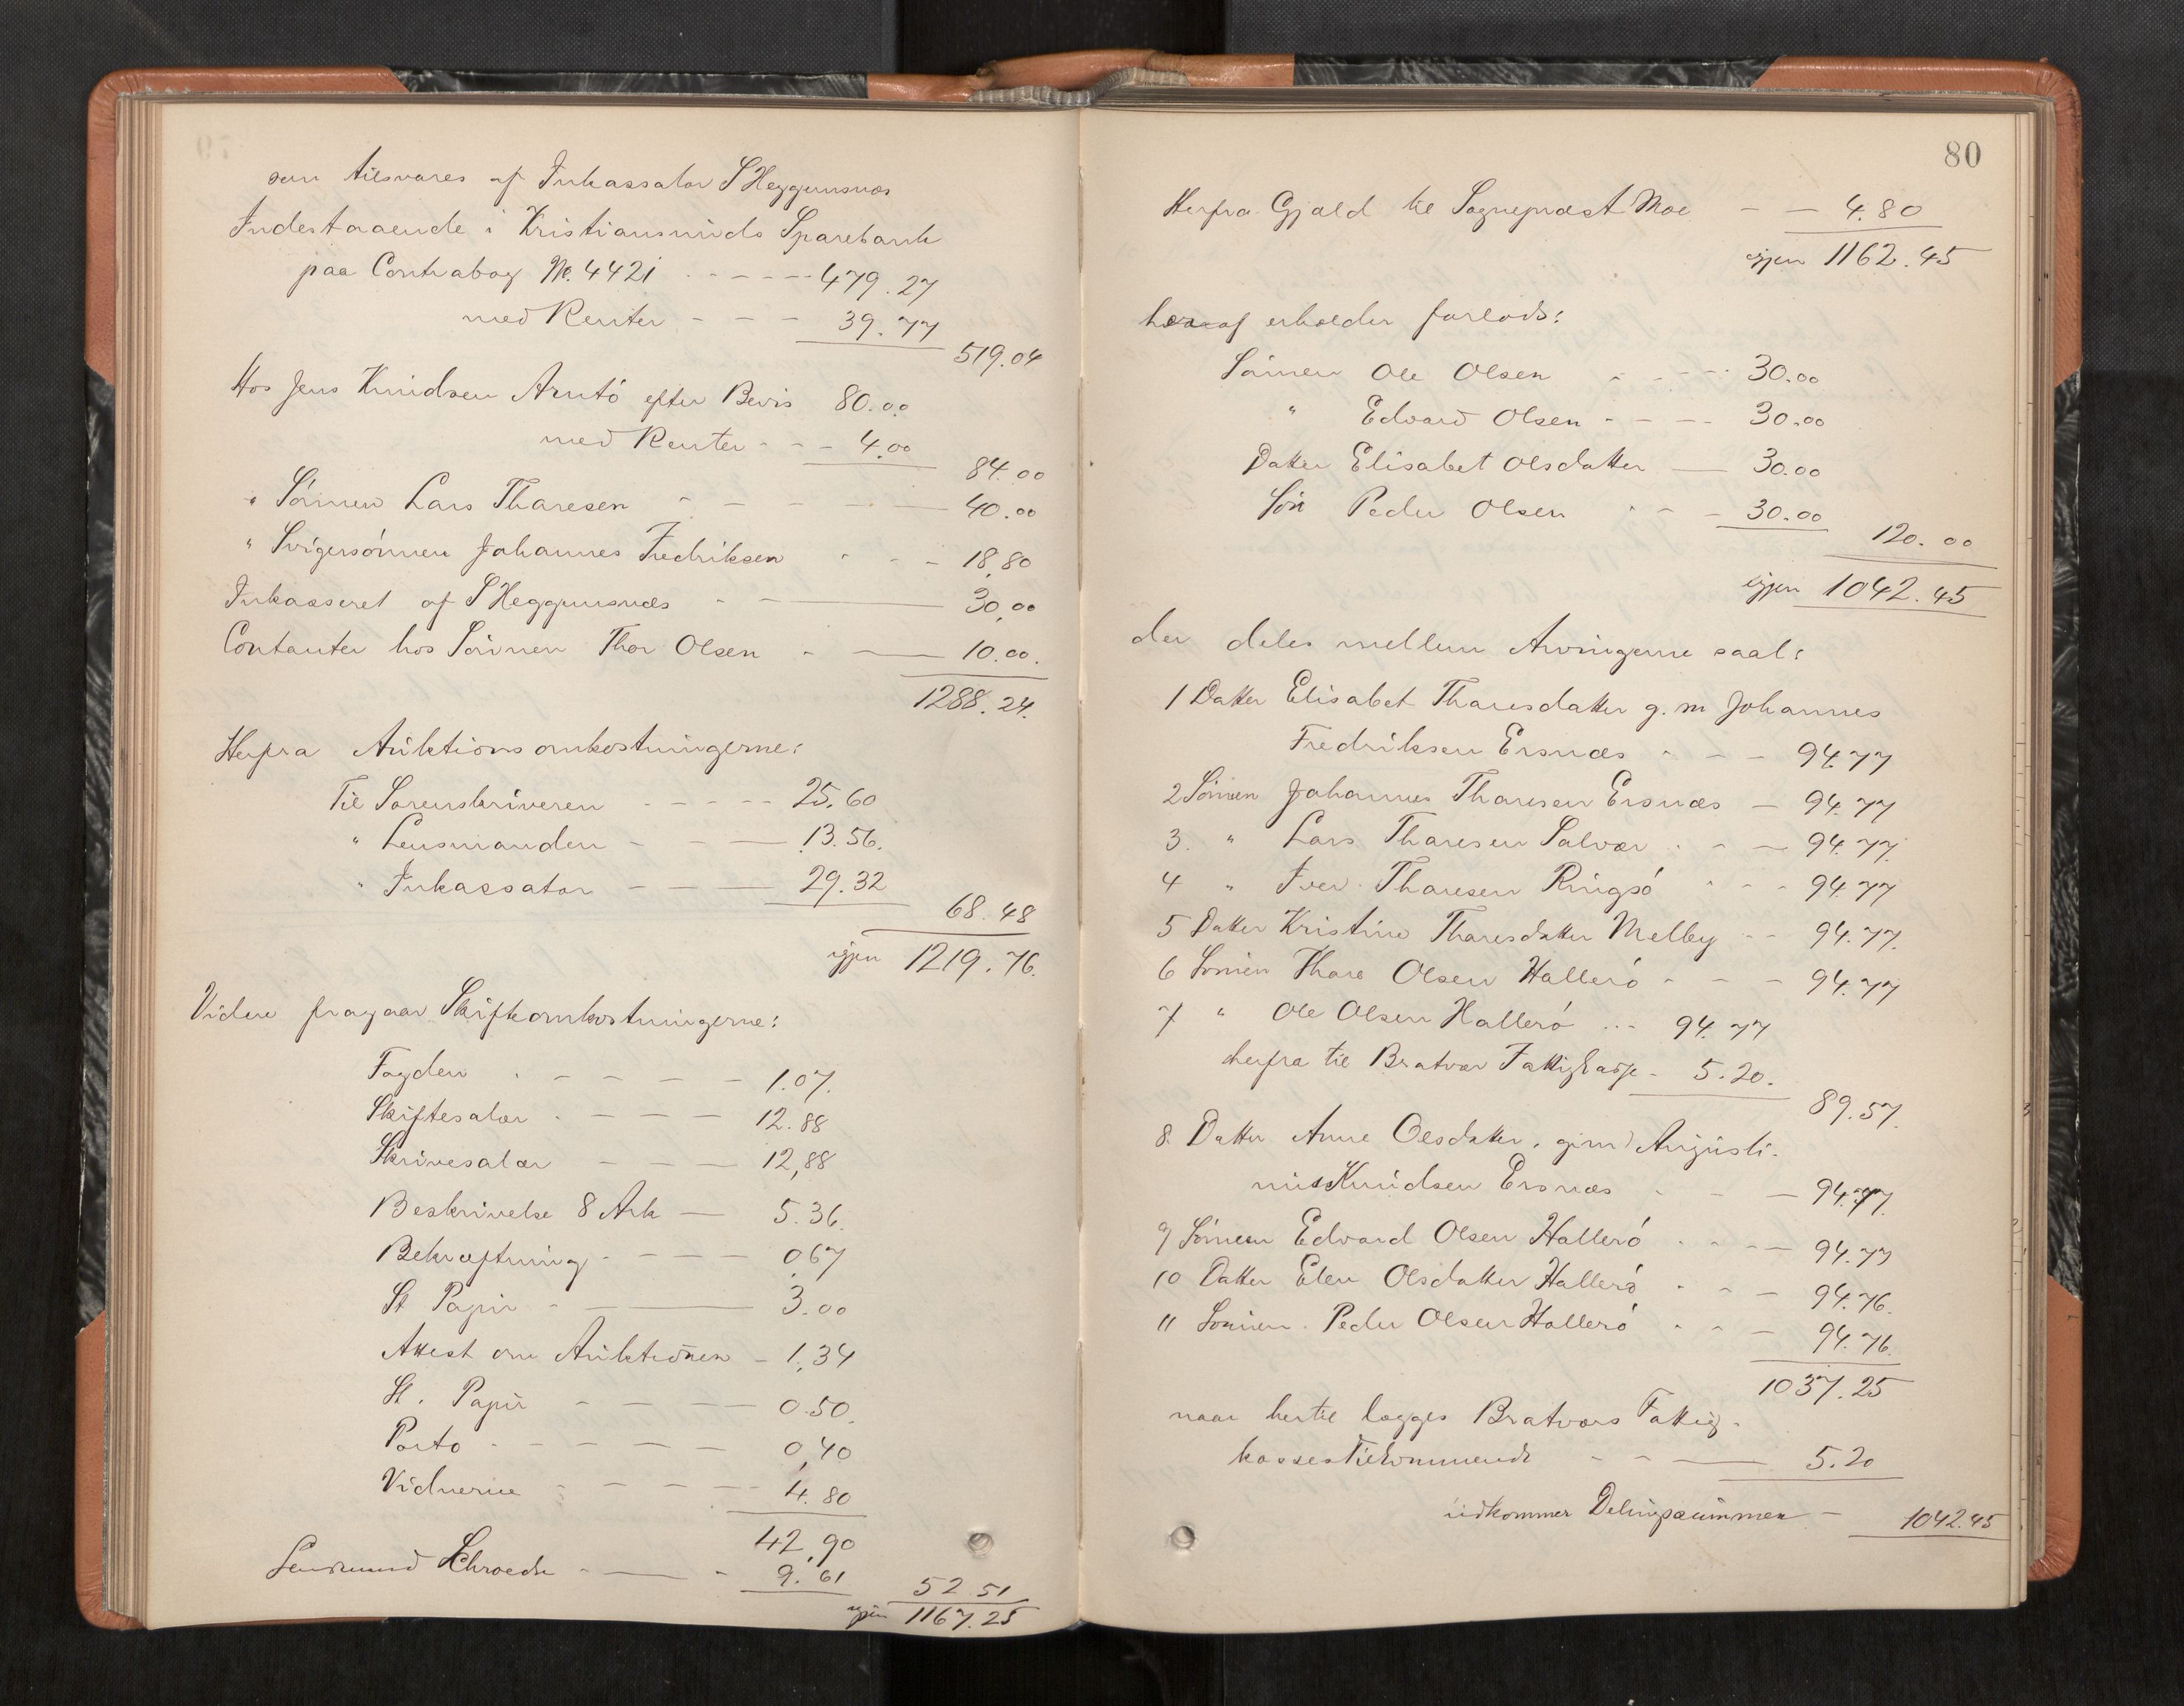 som tilsvares af Inkassator S Heggemsnæs
Indestaaende i Kristiansunds Sparebank
paa Contrabog No. 4421 - - - - 479.27
med Renter - - - 39.77
519.04
Hos Jens Knudsen Arntö efter Bevis 80.00
med Renter - - - 4.00
84.00
" Sönnen Lars Tharesen - - - - 40.00
" Svigersönnen Johannes Fredriksen - - - 18,80
Inkasseret af S Heggemsnæs - - 30,00
Contanter hos Sönnen Thor Olsen - - 10.00.
1288.24.
Herfra Auktionsomkostningerne:
Til Sorenskriveren - - - - - 25.60
" Lensmanden - - - 13.56.
" Inkassator - - - 29.32
68.48
igjen 1219.76.
Videre fragaar Skifteomkostningerne:
Fogden - - - - - 1.07.
Skiftesalær - - - - 12.88
Skrivesalær - - - 12,88
Beskrivelse 8 Ark - 5.36.
Bekræftning - - - - 0.67
St Papir - - 3.00
Attest om Auktionen - 1,34
St. Papir - - - - 0.50.
Porto - - - - - - 0,40
Vidnerne - - - - - 4.80
42,90
Lensmand Schroeder - - - 9.61
52 51
igjen 1167.25
80
Herfra Gjæld til Sogneprest Moe - - 4.80
igjen 1162.45
heraf erholder forlods:
Sönnen Ole Olsen - - - - 30.00
" Edvard Olsen - - - - 30.00
Datter Elisabet Olsdatter - 30.00
Sön Peder Olsen - - - 30.00
120.00
igjen 1042.45
der deles mellem Arvingerne saal:
1 Datter Elisabet Tharesdatter g. m Johannes
Fredriksen Ersnæs - - - 94.77
2 Sönnen Johannes Tharesen Ersnæs - 94.77
3. " Lars Tharesen Salvær - - - 94.77.
4 " Iver Tharesen Ringsö - - - 94.77
5 Datter Kristine Tharesdatter Melby - - 94.77.
6 Sönnen Thare Olsen Hallerö - - - 94.77
7 " Ole Olsen Hallerö ... 94.77
herfra til Bratvær Fattigkasse - 5.20.
89.57.
8. Datter Anne Olsdatter, gim) Augusti-
nus Knudsen Ersnæs - - - 94.77.
9 Sönnen Edvard Olsen Hallerö - - - - 94.77
10 Datter Elen Olsdatter Hallerö - - - 94.76.
11 Sönnen Peder Olsen Hallerö - - - 94.76.
1037.25
naar hertil lægges Bratværs Fattig-
kasses Tilkommende - - - 5.20
udkommer Delingssummen - 1042.45